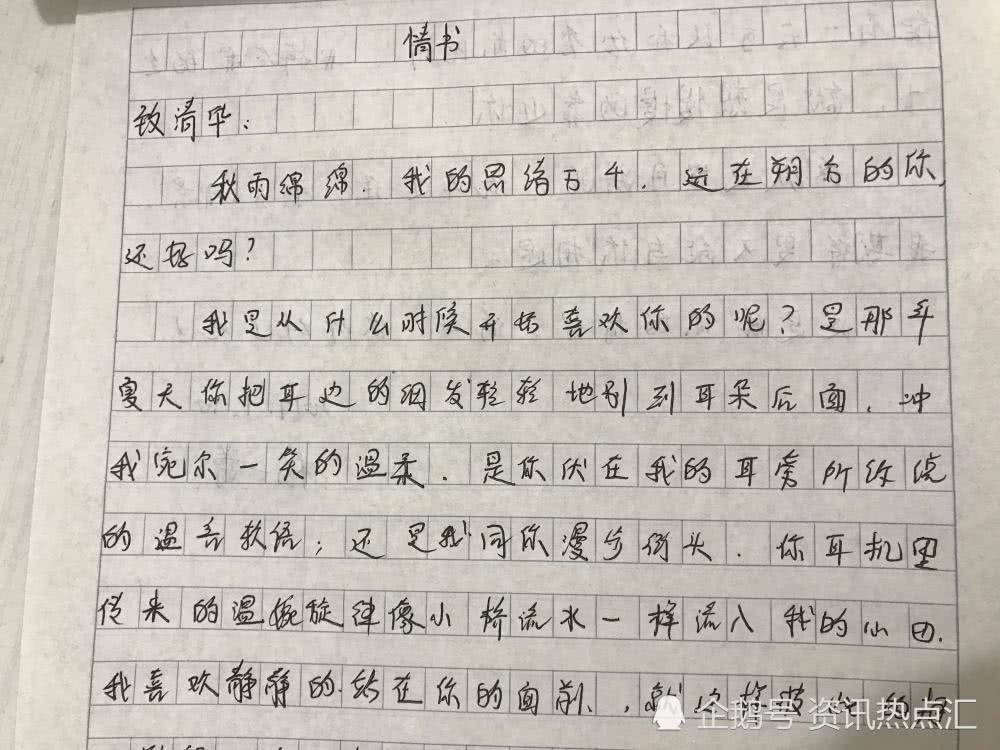 情书
致清华：
秋雨绵绵．我的思绪万千．远在朔方的你，
还好吗？
我是从什么时候开始喜欢你的呢？是那年
夏天你把耳边的细发轻轻地别到耳朵后面．冲
我宛尔一笑的温柔．是你伏在我的耳旁所缭绕
的温言软语；还是我同你漫步街头．你耳机里
传来的温婉旋律像小桥流水一样流入我的心田．
我喜欢静静的站在你的面前．就这样
企鹅号 资讯热点汇